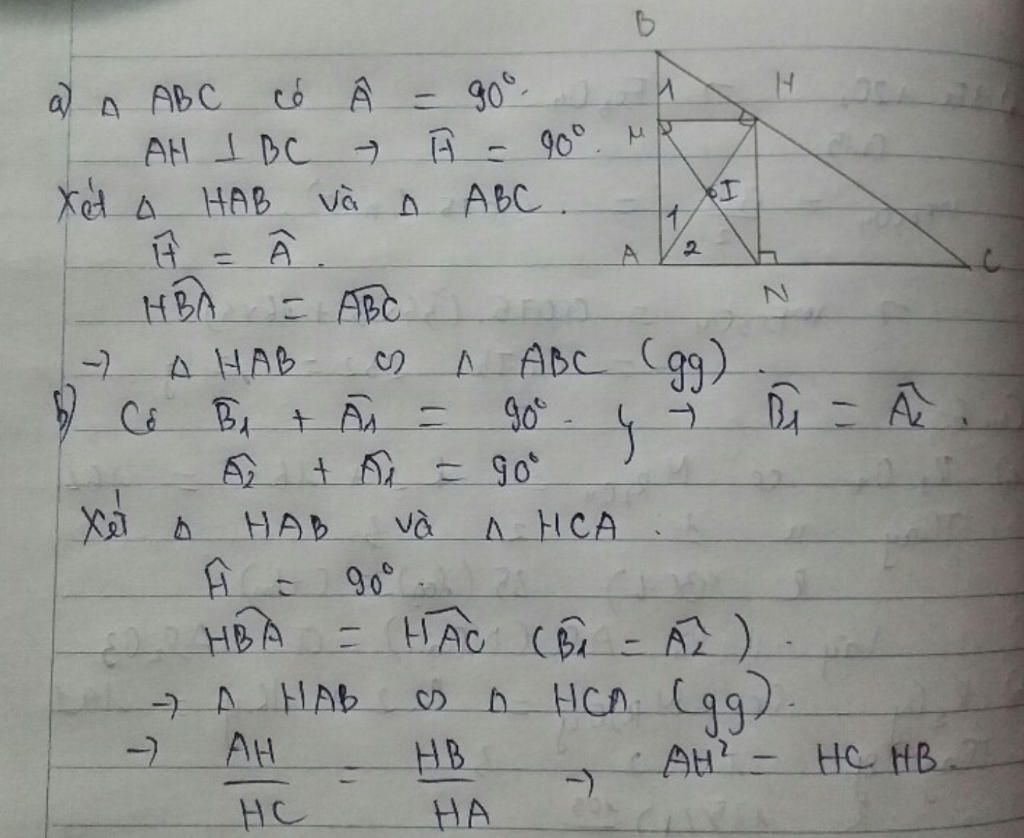 a) Δ ABC có Â = 90°.
AH ⊥ BC → Ĥ = 90°.
Xét Δ HAB và Δ ABC.
Ĥ = Â.
HB̂A = AB̂C
→ Δ HAB ∽ Δ ABC (gg).
b) Có B̂1 + Â1 = 90°. } → B̂1 = Â2.
Â2 + Â1 = 90°
Xét Δ HAB và Δ HCA.
Ĥ = 90°.
HB̂A = HÂC (B̂1 = Â2).
→ Δ HAB ∽ Δ HCA (gg).
→ AH/HC = HB/HA → AH² = HC HB.
B
1
H
M
I
1
A
2
C
N